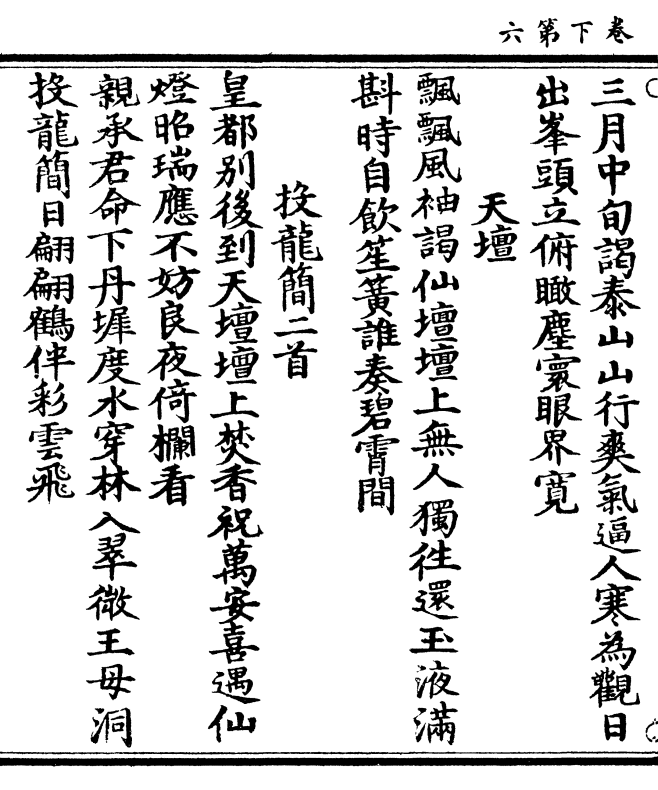 卷下第六
三月中旬謁泰山山行爽氣逼人寒為觀日
出峯頭立俯瞰塵寰眼界寛
天壇
飄飄風袖謁仙壇壇上無人獨徃還玉液滿
斟時自飲笙簧誰奏碧霄間
投龍簡二首
皇都别後到天壇壇上焚香祝萬安喜遇仙
燈昭瑞應不妨良夜倚欄看
親承君命下丹墀度水穿林入翠微王母洞
投龍簡日翩翩鶴伴彩雲飛